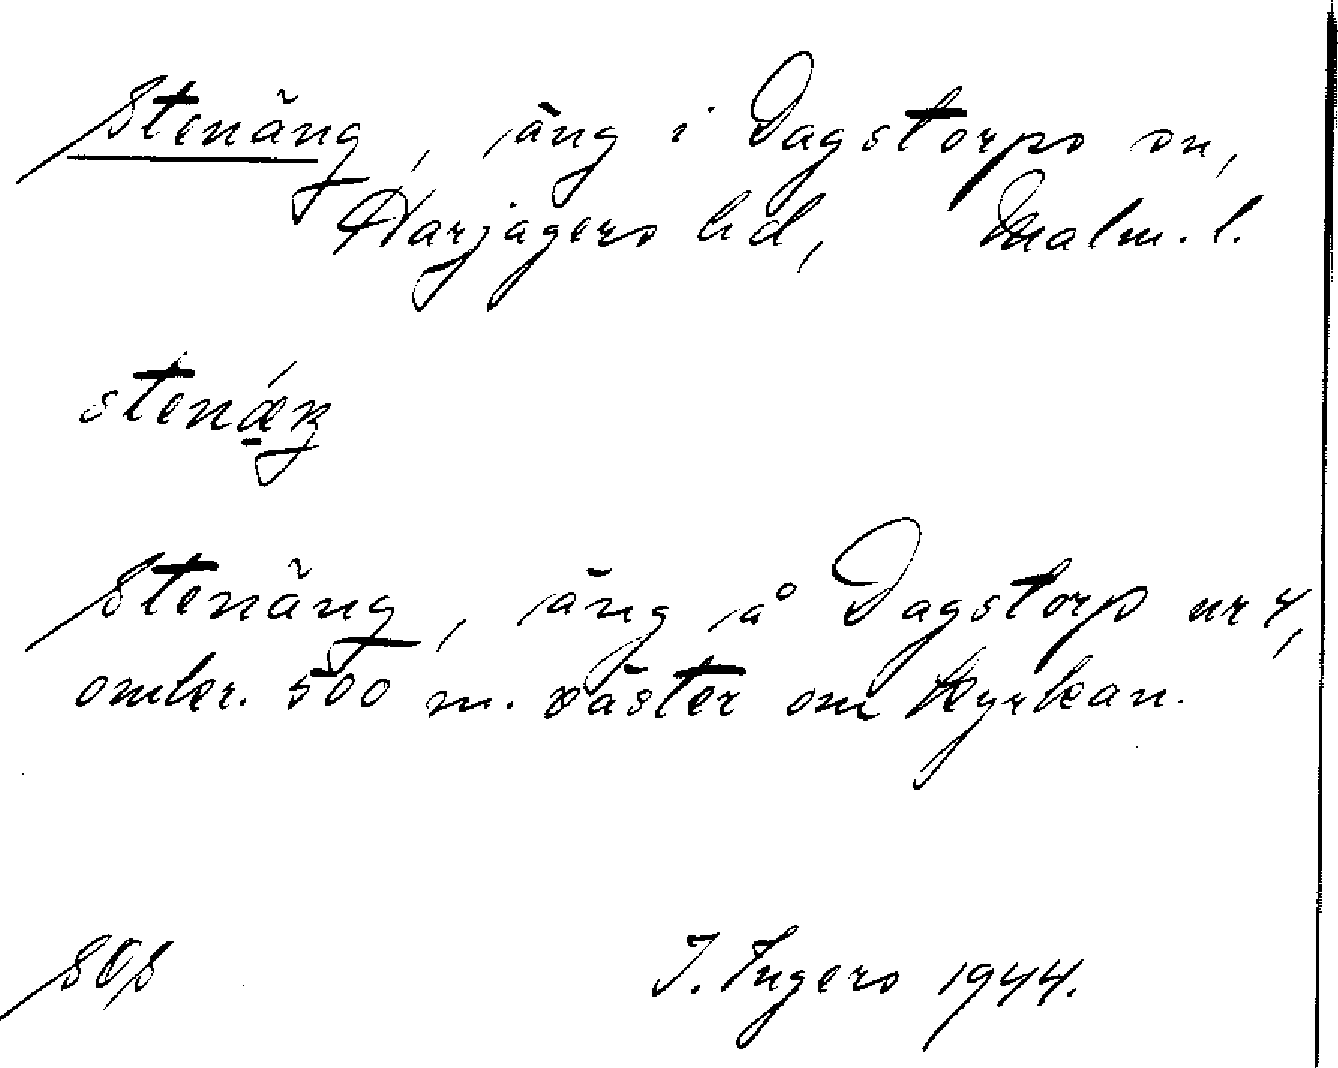 Stenäng, äng i Dagstorps sn,
Harjagers hd, Malm. l.
Stenäng, äng å Dagstorp nr 4,
omkr. 500 m. väster om kyrkan.
SOS I. Ingers 1944.